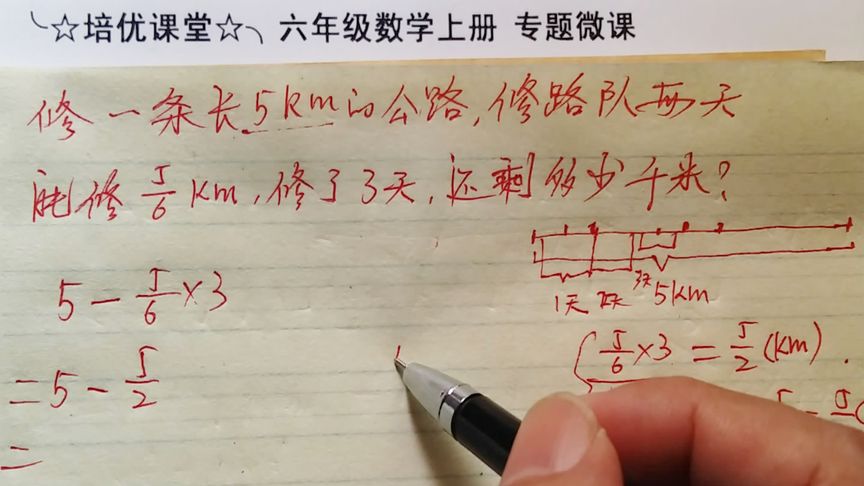 ☆培优课堂☆ 六年级数学上册 专题微课
修一条长5km的公路,修路队每天
能修5/6km,修了3天,还剩多少千米?
1天 2天 3天 5km
5-5/6×3
=5-5/2
=
5/6×3=5/2(km)